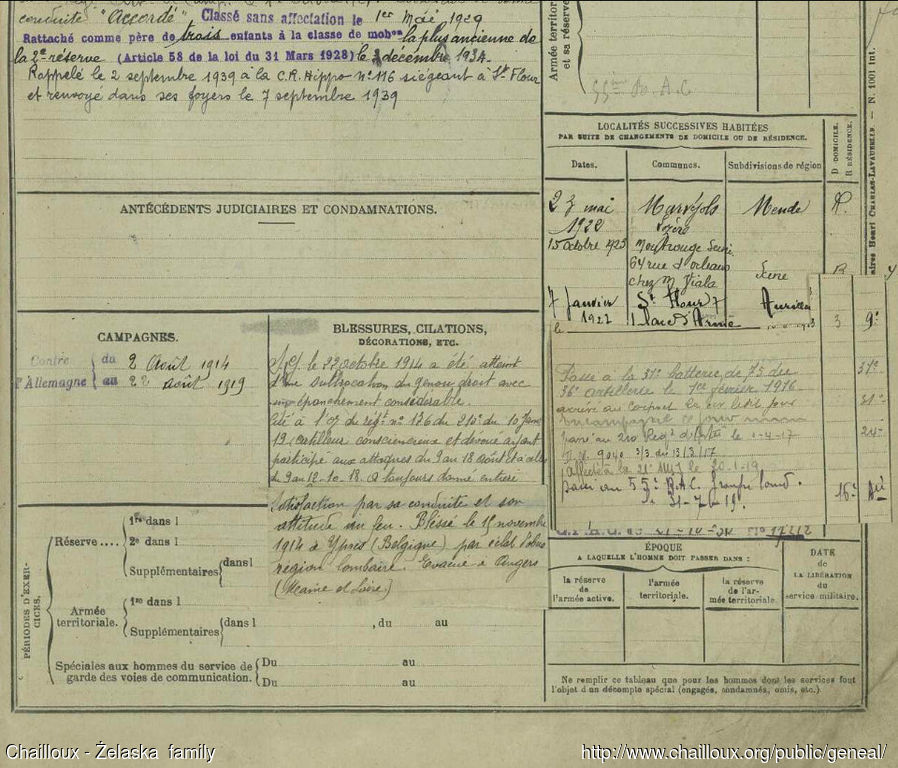 conduite "Accordé", Classé sans affectation le 1er Mai 1929
Rattaché comme père de trois enfants à la classe de mobon la plus ancienne de
la 2e réserve (Article 58 de la loi du 31 Mars 1928) le décembre 1934.
Rappelé le 2 septembre 1939 à la C.R. Hippo n° 116 siégeant à St Flour
et renvoyé dans ses foyers le 7 septembre 1939
ANTÉCÉDENTS JUDICIAIRES ET CONDAMNATIONS.
CAMPAGNES.
Contre l'Allemagne
du 2 Août 1914
au 22 Août 1919
BLESSURES, CITATIONS,
DÉCORATIONS, ETC.
le 22 octobre 1914 a été atteint
d'une du genou droit avec
épanchement considérable.
Cité à l'O/ du régt n° 176 du 210e du 10 Janv
19. artilleur consciencieux et dévoué ayant
participé aux attaques du 9 au 18 Août et à celles
du 9 au 12-10-18. A toujours donné entière
satisfaction par sa conduite et son
attitude au feu. Blessé le 15 novembre
1914 à Ypres (Belgique) par éclat d'obus
région lombaire. Evacué à Angers
(Maine et Loire)
PÉRIODES D'EXERCICES.
Réserve....
1re dans l
2e dans l
Supplémentaires
dans l
Armée
territoriale.
1re dans l
Supplémentaires
dans l
, du au
Spéciales aux hommes du service de
garde des voies de communication.
Du au
Du au
Armée territor
et sa réserve
55ème R.A.C
LOCALITÉS SUCCESSIVES HABITÉES
PAR SUITE DE CHANGEMENTS DE DOMICILE OU DE RÉSIDENCE.
Dates. Communes. Subdivisions de région
D DOMICILE.
R RÉSIDENCE.
23 mai
1920
Marvejols
Lozère
Mende
R.
15 Octobre 1925
Montrouge Seine
64 rue d'orléans
chez M Viala
Seine
R
7 Janvier
1927
St Flour
Place d'Armes
Aurillac
le
3
9e
Passé à la 31e batterie de 75 du
36e artillerie le 1er février 1916
arrivé au corps et le dit jour
Passé au 210 Régt d'Artie le 1-4-17
9040 3/3 du 13/3/17
Affecté à la 21e le 20-1-19
Passé au 55e R.A.C. groupe
31-7-19.
31e
31e
16e
ÉPOQUE
A LAQUELLE L'HOMME DOIT PASSER DANS :
la réserve
de
l'armée active.
l'armée
territoriale.
la réserve
de l'ar-
mée territoriale.
DATE
de
LA LIBÉRATION
du
service militaire.
Ne remplir ce tableau que pour les hommes dont les services font
l'objet d'un décompte spécial (engagés, condamnés, omis, etc.)
aires Henri CHARLES-LAVAUZELLE. — N. 1001 Int.
Chailloux - Żelaska family
http://www.chailloux.org/public/geneal/